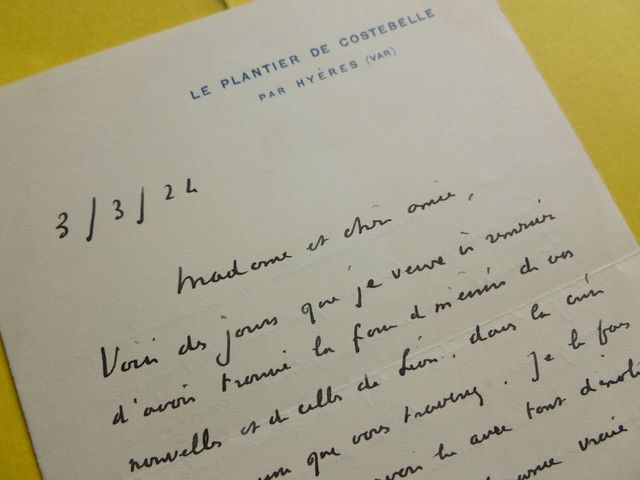 LE PLANTIER DE COSTEBELLE
PAR HYÈRES (VAR)
3/3/24
Madame et chère amie,
Voici des jours que je veux vous remercier
d'avoir trouvé la force de m'écrire de vos
nouvelles et de celles de Léon, dans la
que vous traversez. Je le fais
lu avec tant d'émotion
vraie